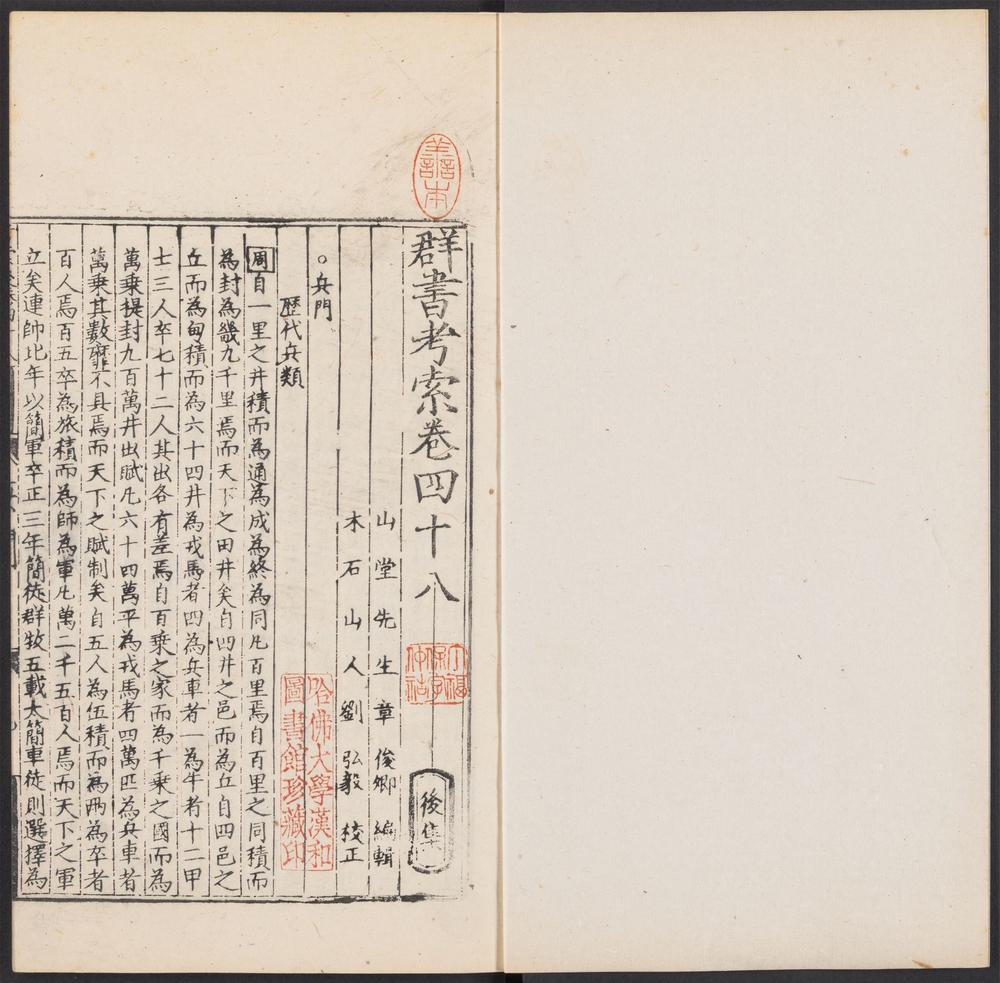 善本
群書考索卷四十八
後集
山堂先生章俊卿編輯
木石山人劉弘毅校正
哈佛大學漢和圖書館珍藏印
○兵門
歷代兵類
周自一里之井積而為通為成為終為同凡百里焉自百里之同積而
為封為畿九千里焉而天下之田井矣自四井之邑而為丘自四邑之
丘而為甸積而為六十四井為戎馬者四為兵車者一為牛者十二甲
士三人卒七十二人其出各有差焉自百乘之家而為千乘之國而為
萬乘提封九百萬井出賦凡六十四萬平為戎馬者四萬匹為兵車者
萬乘其數靡不具焉而天下之賦制矣自五人為伍積而為兩為卒者
百人焉百五卒為旅積而為師為軍凡萬二千五百人焉而天下之軍
立矣連帥比年以簡軍卒正三年簡徒群牧五載大簡車徒則選擇為